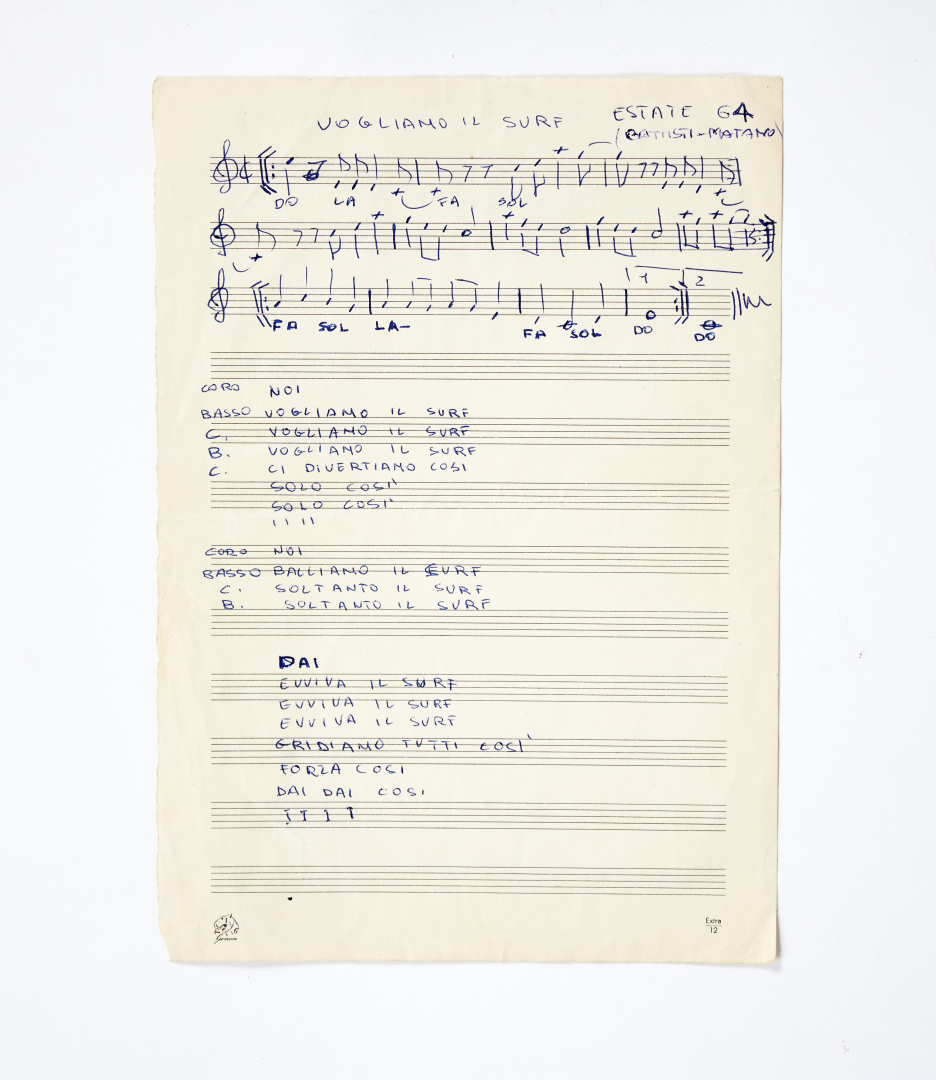 VOGLIAMO IL SURF
ESTATE 64
(BATTISTI-MATANO)
DO LA FA SOL
FA SOL LA- FA SOL DO DO
1 2
CORO NOI
BASSO VOGLIAMO IL SURF
C. VOGLIAMO IL SURF
B. VOGLIAMO IL SURF
C. CI DIVERTIAMO COSI
SOLO COSI'
SOLO COSI'
" "
CORO NOI
BASSO BALLIAMO IL SURF
C. SOLTANTO IL SURF
B. SOLTANTO IL SURF
DAI
EVVIVA IL SURF
EVVIVA IL SURF
EVVIVA IL SURF
GRIDIAMO TUTTI COSI'
FORZA COSI
DAI DAI COSI
Extra
12